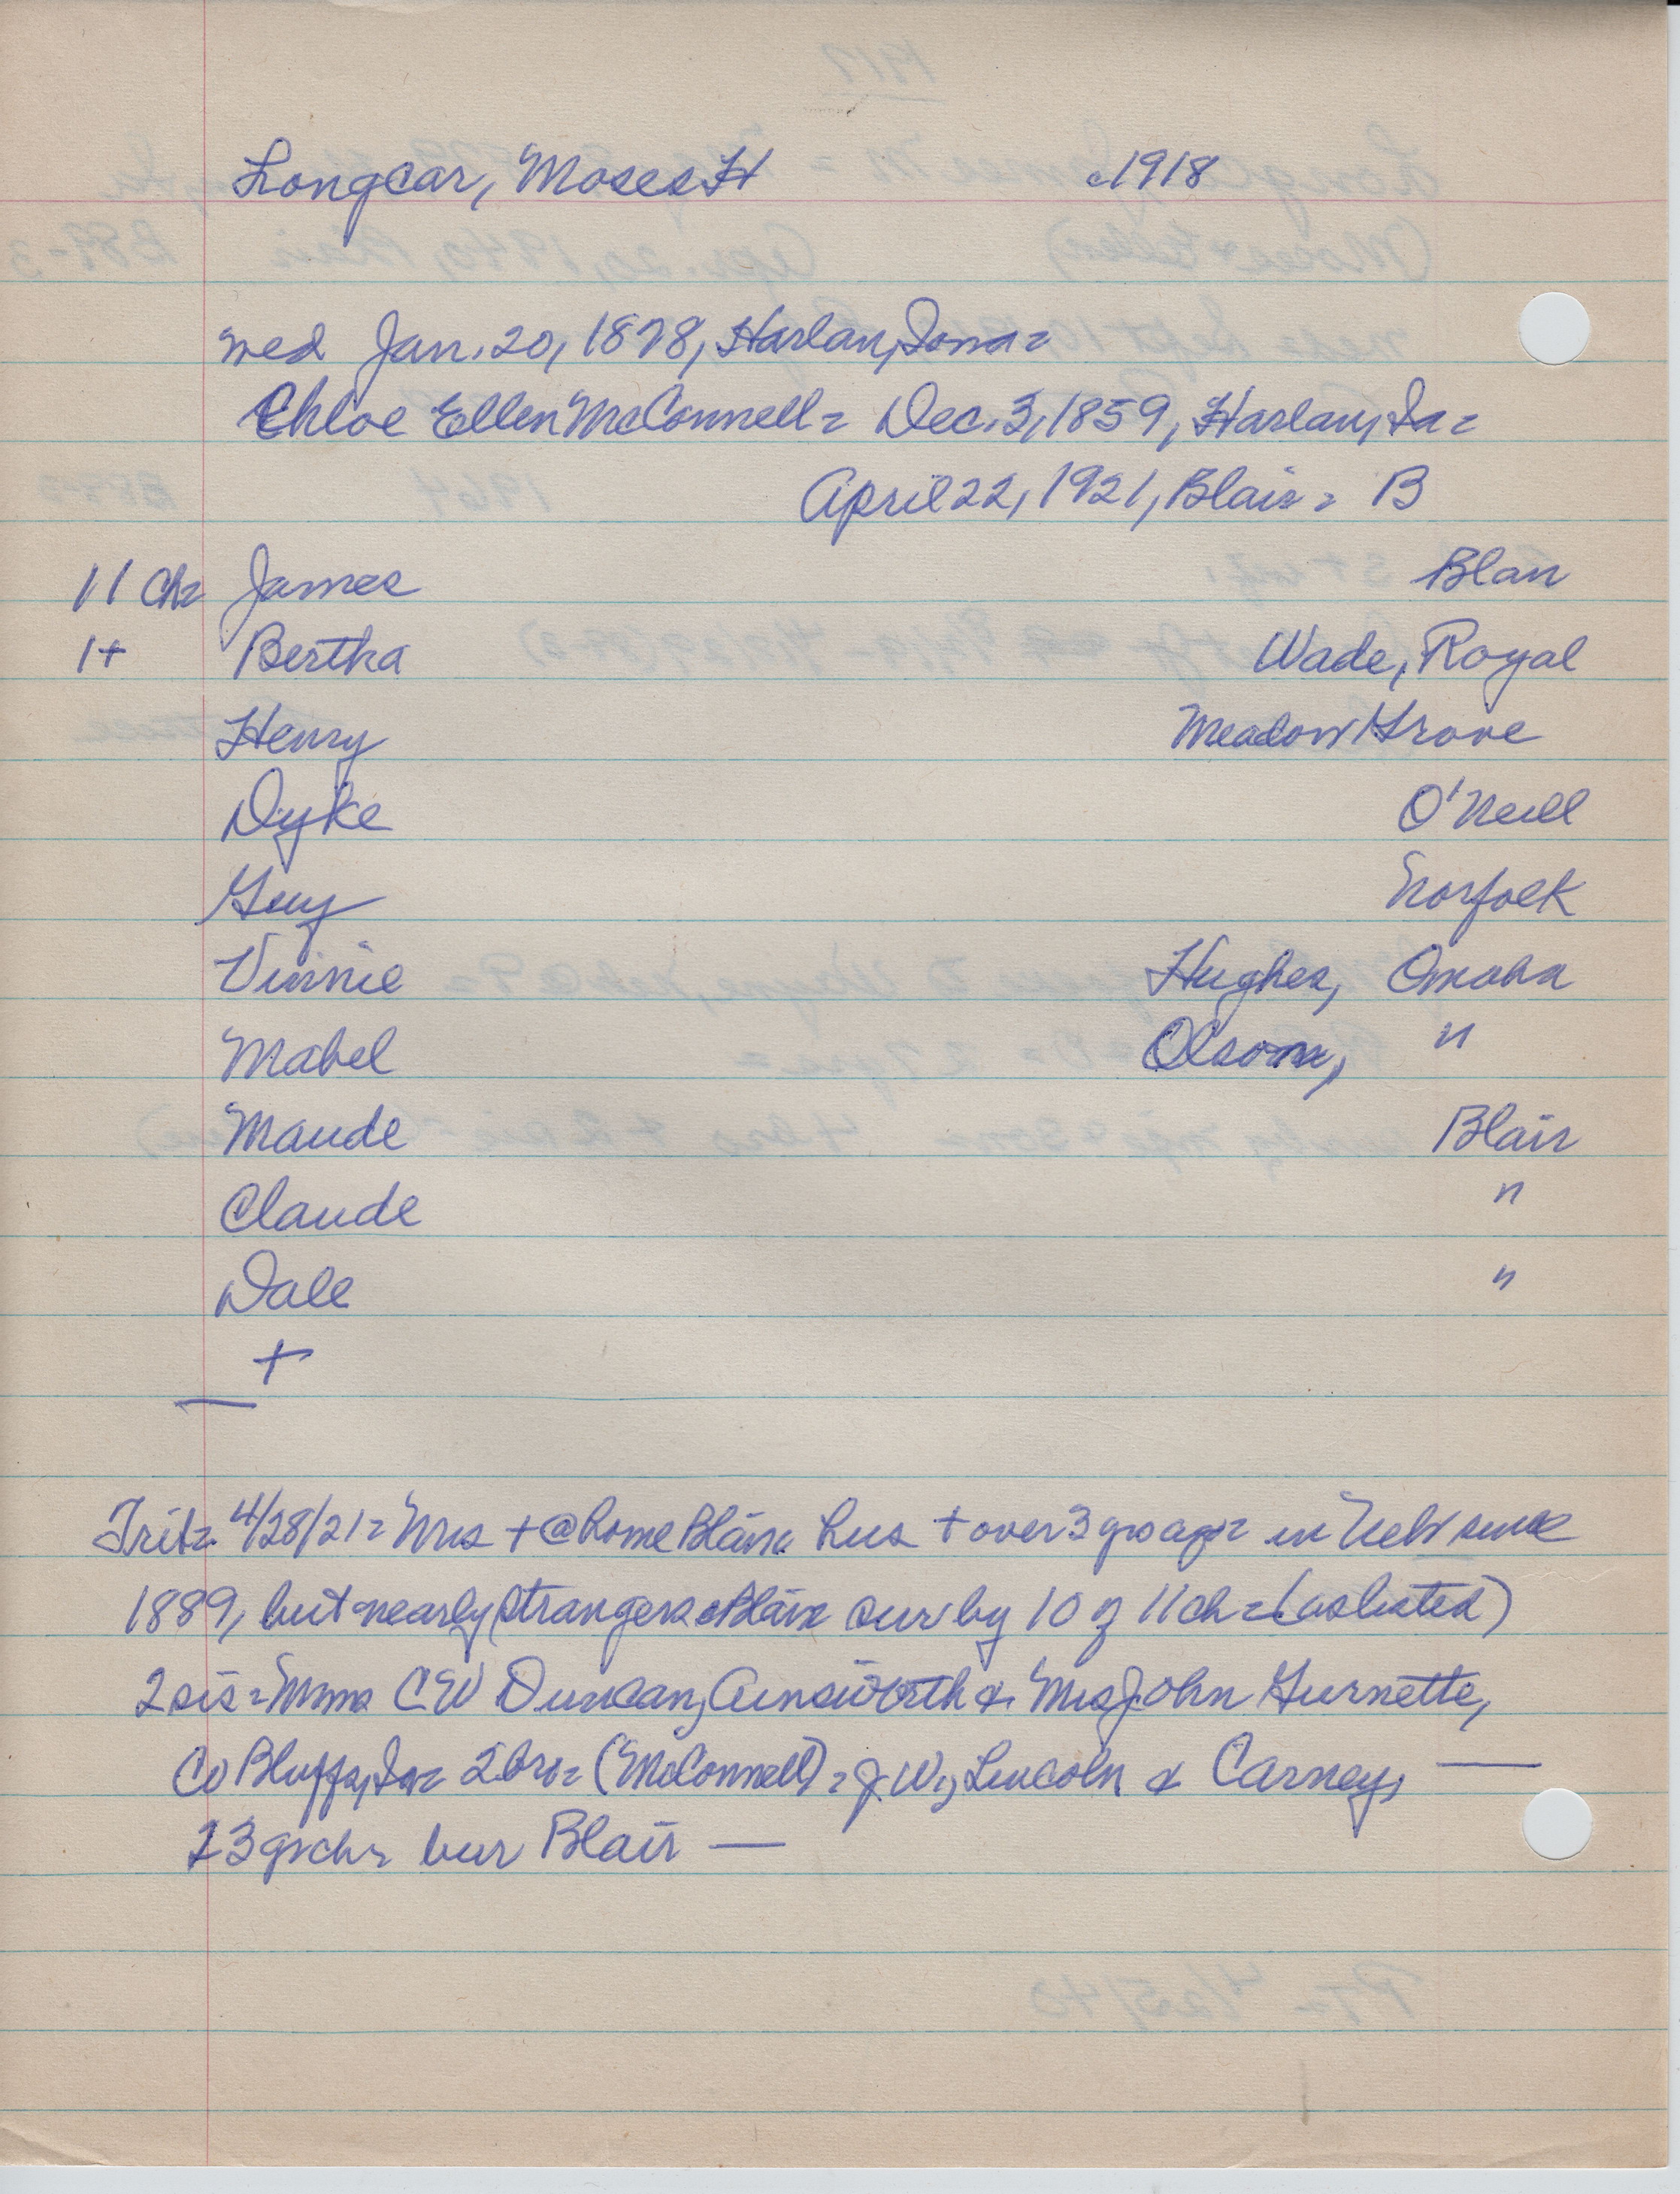 Longcar, Moses H c1918
wed Jan. 20, 1878, Harlan, Iowa =
Chloe Ellen McConnell = Dec. 3, 1859, Harlan, Ia =
April 22, 1921, Blair = B
11 Ch = James Blair
1+ Bertha Wade, Royal
Henry Meadow Grove
Dyke O'Neill
Guy Norfolk
Vinnie Hughes, Omaha
Mabel Olson, "
Maude Blair
Claude "
Dale "
+
Trib = 4/28/21 = Mrs + @ home Blair = hus + over 3 yrs ago = in Neb since
1889, but nearly strangers @ Blair sur by 10 of 11 ch = (as listed)
2 sis = Mrs C W Duncan, Ainsworth & Mrs John Gurnette,
Co Bluffs, Ia = 2 bro = (McConnell) = J. W., Lincoln & Carney, —
23 grch = bur Blair —